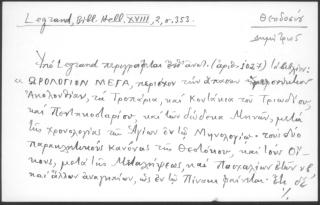 Legrand, Bibl. Hell. XVIII, 2, σ. 353.
Θεοδοσίου
Δημήτριος
Ὑπὸ Legrand περιγράφεται (ἀριθ. 1027) τὸ βιβλίον:
« ΩΡΟΛΟΓΙΟΝ ΜΕΓΑ, περιέχον τὴν ἅπασαν
Ἀκολουθίαν, τὰ Τροπάρια, καὶ Κοντάκια τοῦ Τριωδίου,
καὶ Πεντηκοσταρίου, καὶ τῶν δώδεκα Μηνῶν, μετὰ
τῆς χρονολογίας τῶν Ἁγίων ἐν τῷ Μηνολογίῳ· τοὺς δύο
παρακλητικοὺς κανόνας τῆς Θεοτόκου, καὶ τοὺς Οἴ-
κους, μετὰ τῆς Μεταλήψεως, καὶ Πασχαλίων ἐτῶν
καὶ ἄλλων ἀναγκαίων, ὡς ἐν τῷ Πίνακι φαίνεται·